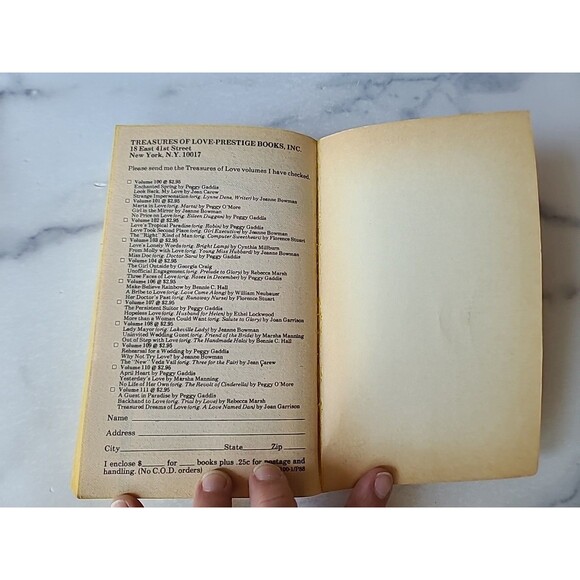 TREASURES OF LOVE-PRESTIGE BOOKS, INC.
18 East 41st Street
New York, N.Y. 10017
Please send me the Treasures of Love volumes I have checked.
□ Volume 100 @ $2.95
Enchanted Spring by Peggy Gaddis
Look Back, My Love by Jean Carew
Strange Impersonation (orig. Lynne Dena, Writer) by Jeanne Bowman
□ Volume 101 @ $2.95
Marta in Love (orig. Marta) by Peggy O'More
Girl in the Mirror by Jeanne Bowman
No Price on Love (orig. Eileen Duggan) by Peggy Gaddis
□ Volume 102 @ $2.95
Love's Tropical Paradise (orig. Robin) by Peggy Gaddis
Love Took Second Place (orig. Girl Executive) by Jeanne Bowman
The "Right" Kind of Man (orig. Computer Sweetheart) by Florence Stuart
□ Volume 103 @ $2.95
Love's Lonely Words (orig. Bright Lamp) by Cynthia Millburn
From Molly with Love (orig. Young Miss Hubbard) by Jeanne Bowman
Miss Doc (orig. Doctor Sara) by Peggy Gaddis
□ Volume 104 @ $2.95
The Girl Outside by Georgia Craig
Unofficial Engagement (orig. Prelude to Glory) by Rebecca Marsh
Three Faces of Love (orig. Roses in December) by Peggy Gaddis
□ Volume 106 @ $2.95
Make Believe Rainbow by Bennie C. Hall
A Bribe to Love (orig. Love Came Along) by William Neubauer
Her Doctor's Past (orig. Runaway Nurse) by Florence Stuart
□ Volume 107 @ $2.95
The Persistent Suitor by Peggy Gaddis
Hopeless Love (orig. Husband for Helen) by Ethel Lockwood
More than a Woman Could Want (orig. Salute to Glory) by Joan Garrison
□ Volume 108 @ $2.95
Lady Mayor (orig. Lakeville Lady) by Jeanne Bowman
Uninvited Wedding Guest (orig. Friend of the Bride) by Marsha Manning
Out of Step with Love (orig. The Handmade Hals) by Bennie C. Hall
□ Volume 109 @ $2.95
Rehearsal for a Wedding by Peggy Gaddis
Why Not Try Love? by Jeanne Bowman
The "New" Veda Vall (orig. Three for the Fair) by Jean Carew
□ Volume 110 @ $2.95
April Heart by Peggy Gaddis
Yesterday's Love by Marsha Manning
No Life of Her Own (orig. The Revolt of Cinderella) by Peggy O'More
□ Volume 111 @ $2.95
A Guest in Paradise by Peggy Gaddis
Backhand to Love (orig. Trial by Love) by Rebecca Marsh
Treasured Dreams of Love (orig. A Love Named Dan) by Joan Garrison
Name
Address
City State Zip
I enclose $ for books plus .25c for postage and
handling. (No C.O.D. orders)